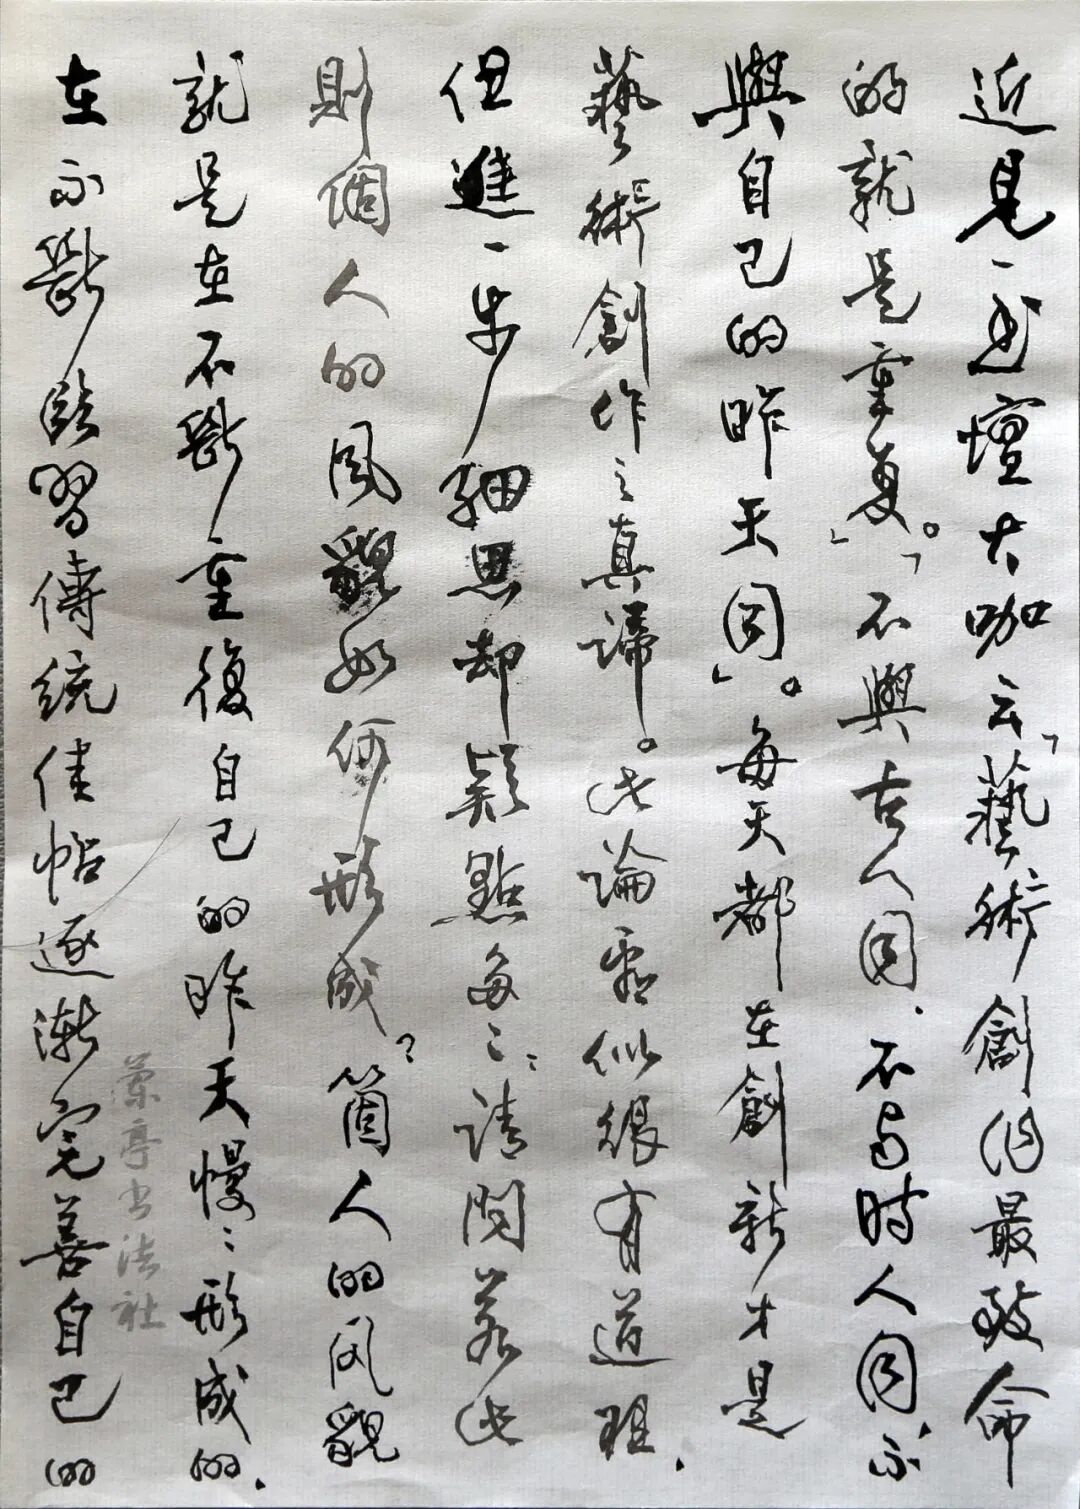 近見一书壇大咖云「藝術創作最致命
的就是重复」。「不與古人同、不与時人同、不
與自己的昨天同」。每天都在創新才是
藝術創作之真諦。此論看似很有道理.
但進一步細思却疑點多:::請問若此
則個人的風貌如何形成?箇人的风貌
就是在不斷重復自己的昨天慢:形成的.
在不斷臨習傳統佳帖逐漸完善自己的
蘭亭书法社